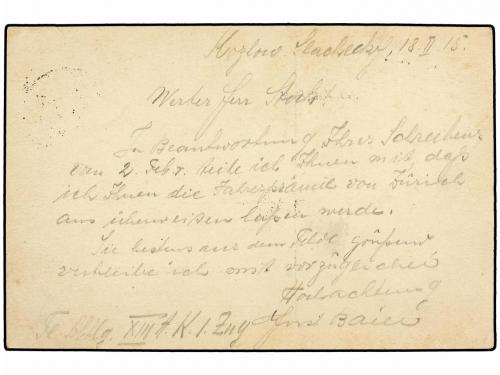 Kozlow, 18. II 15.
Werter Herr
In Beantwortung Ihres Schreibens
vom 2. Feb. teile ich Ihnen mit, daß
ich Ihnen die Jahresprämie von Zürich
aus überweisen laßen werde.
Sie bestens aus dem Felde grüßend
verbleibe ich mit vorzüglicher
Hochachtung
XIII A.K. 1. Zug Baier